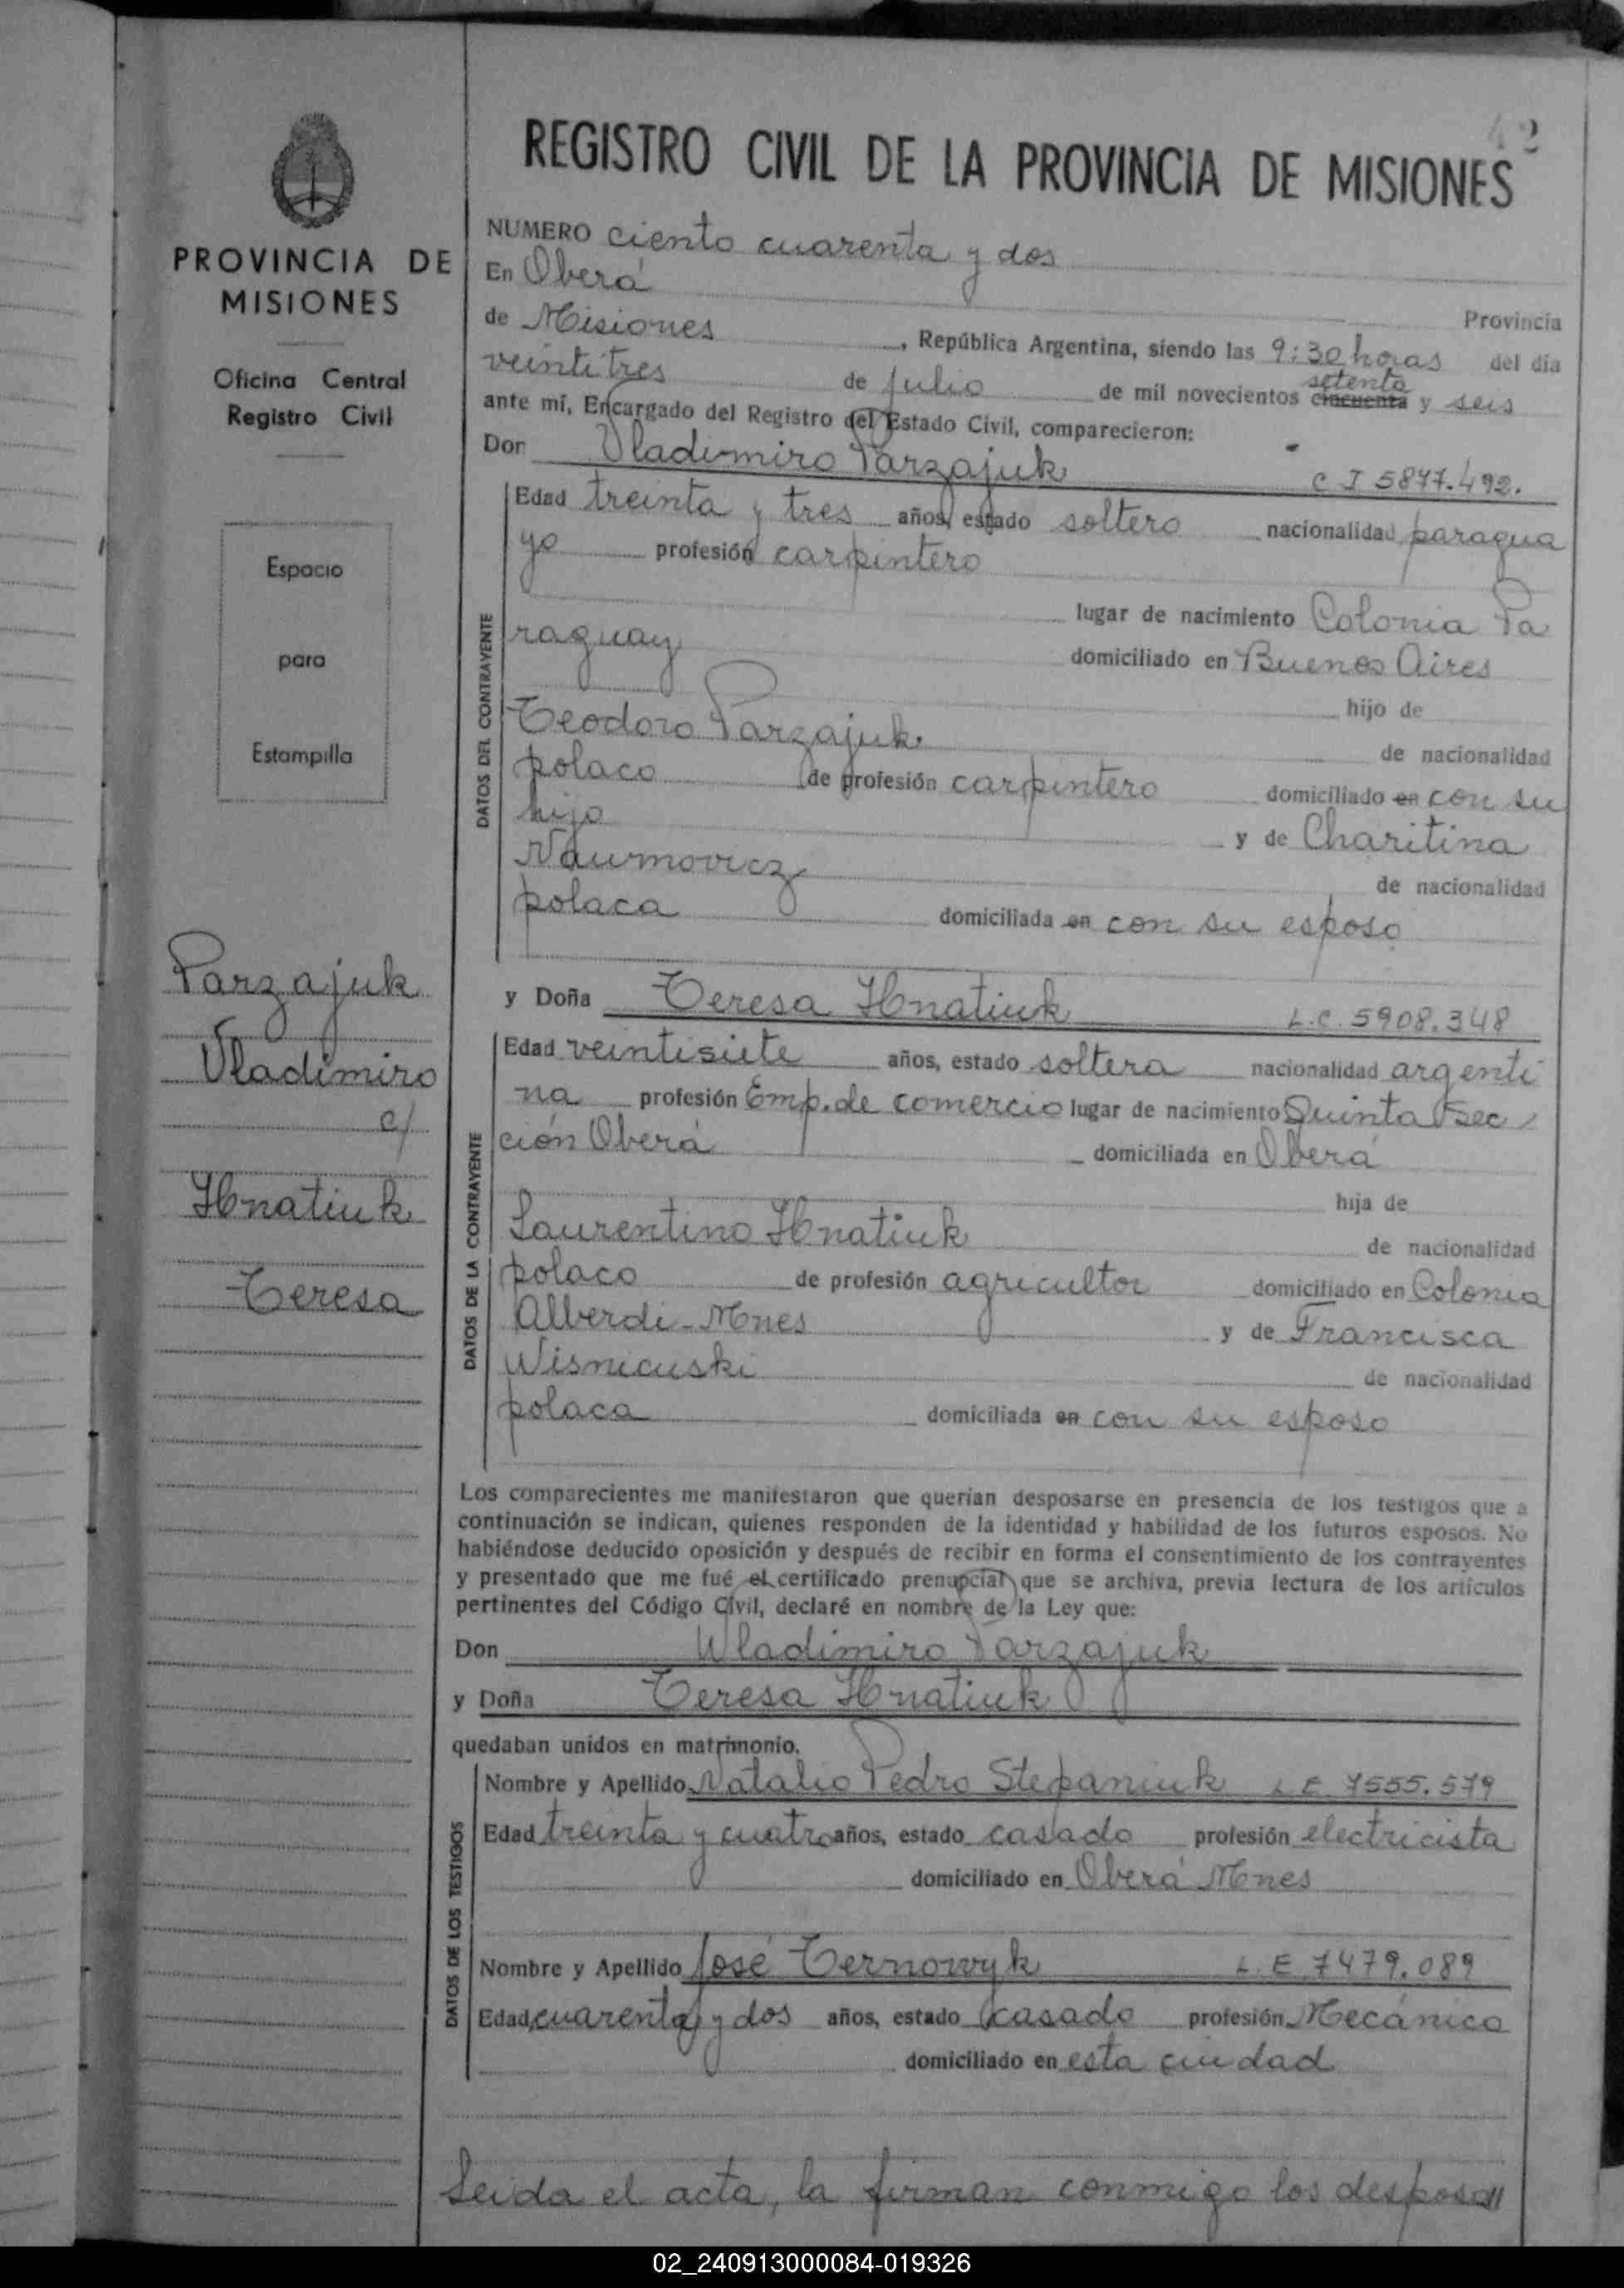 42
REGISTRO CIVIL DE LA PROVINCIA DE MISIONES
PROVINCIA DE
MISIONES
Oficina Central
Registro Civil
Espacio
para
Estampilla
Parzajuk
Vladimiro
c/
Hnatiuk
Teresa
NUMERO ciento cuarenta y dos
En Oberá
Provincia
de Misiones, República Argentina, siendo las 9:30 horas del día
veintitres de julio de mil novecientos cincuenta setenta y seis
ante mí, Encargado del Registro del Estado Civil, comparecieron:
Don Vladimiro Parzajuk C I 5877.492.
DATOS DEL CONTRAYENTE
Edad treinta y tres años, estado soltero nacionalidad paragua
yo profesión carpintero
lugar de nacimiento Colonia Pa
raguay domiciliado en Buenos Aires
hijo de
Teodoro Parzajuk de nacionalidad
polaco de profesión carpintero domiciliado en con su
hijo y de Charitina
Naumovicz de nacionalidad
polaca domiciliada en con su esposo
y Doña Teresa Hnatiuk L.C. 5908.348
DATOS DE LA CONTRAYENTE
Edad veintisiete años, estado soltera nacionalidad argenti
na profesión Emp. de comercio lugar de nacimiento Quinta Sec
ción Oberá domiciliada en Oberá
hija de
Laurentino Hnatiuk de nacionalidad
polaco de profesión agricultor domiciliado en Colonia
Alberdi - Mnes y de Francisca
Wisnieuski de nacionalidad
polaca domiciliada en con su esposo
Los comparecientes me manifestaron que querían desposarse en presencia de los testigos que a
continuación se indican, quienes responden de la identidad y habilidad de los futuros esposos. No
habiéndose deducido oposición y después de recibir en forma el consentimiento de los contrayentes
y presentado que me fué el certificado prenupcial que se archiva, previa lectura de los artículos
pertinentes del Código Civil, declaré en nombre de la Ley que:
Don Wladimiro Parzajuk
y Doña Teresa Hnatiuk
quedaban unidos en matrimonio.
DATOS DE LOS TESTIGOS
Nombre y Apellido Natalio Pedro Stepaniuk L E 7555.579
Edad treinta y cuatro años, estado casado profesión electricista
domiciliado en Oberá Mnes
Nombre y Apellido José Ternowyk L. E 7479.089
Edad cuarenta y dos años, estado casado profesión Mecánico
domiciliado en esta ciudad
Leida el acta, la firman conmigo los desposa//
02_240913000084-019326